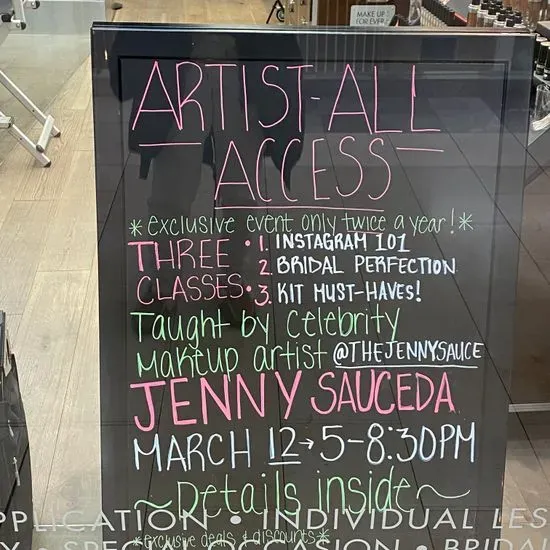 MAKE UP
FOR EVER
ARTIST-ALL
ACCESS
*exclusive event only twice a year!*
THREE • 1. INSTAGRAM 101
2. BRIDAL PERFECTION
CLASSES • 3. KIT MUST-HAVES!
Taught by celebrity
Makeup artist @THEJENNYSAUCE
JENNY SAUCEDA
MARCH 12→5-8:30PM
~Details inside~
PPLICATION • INDIVIDUAL LES
*exclusive deals & discounts*
Y • SPECIAL OCCASION • BRIDAL